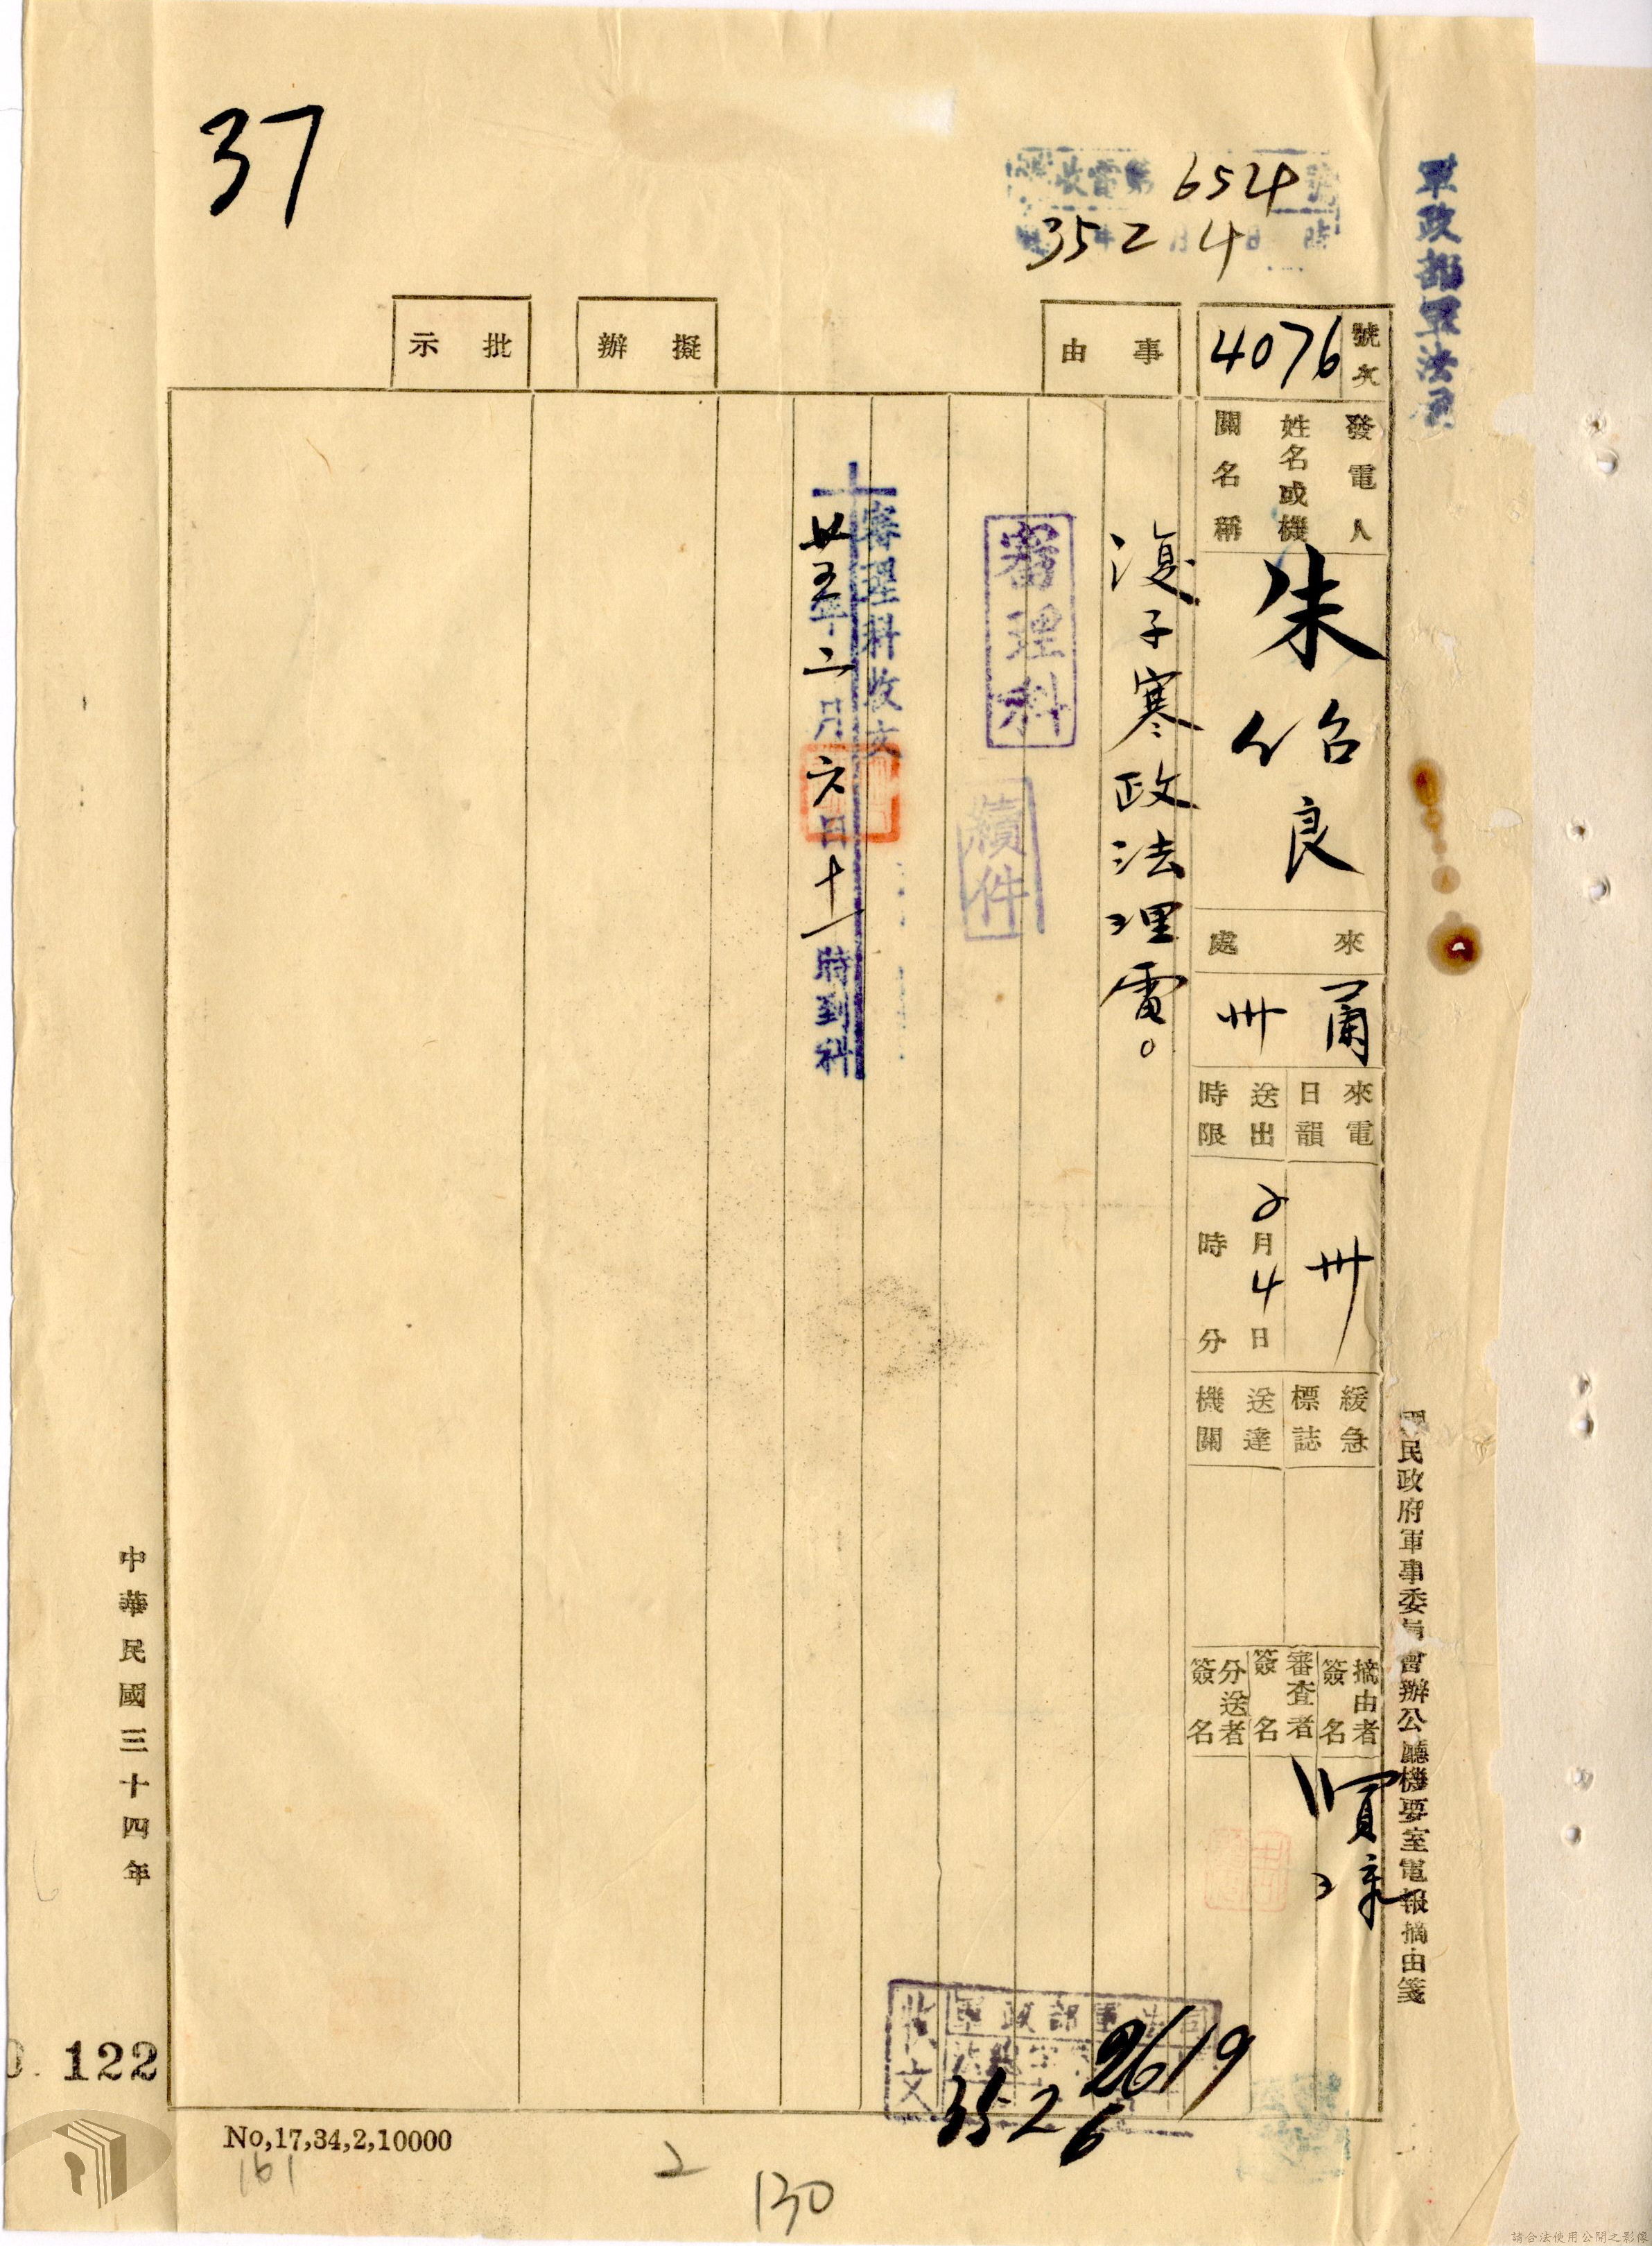 37
收電第654號
35 2 4日 時
軍政部軍法司
國民政府軍事委員會辦公廳機要室電報摘由箋
號次
4076
發電人
姓名或機
關名稱
朱紹良
來處
蘭州
來電
日韻
卅
送出
時限
2月4日
時分
緩急
標誌
送達
機關
摘由者
簽名
審查者
簽名
分送者
簽名
事由
復子寒政法理電。
審理科
續件
審理科收文
卅五年二月六日十一時到科
擬辦
批示
軍政部軍法司
收文
2619
35 2 6
中華民國三十四年
122
No,17,34,2,10000
161
2
130
請合法使用公開之影像